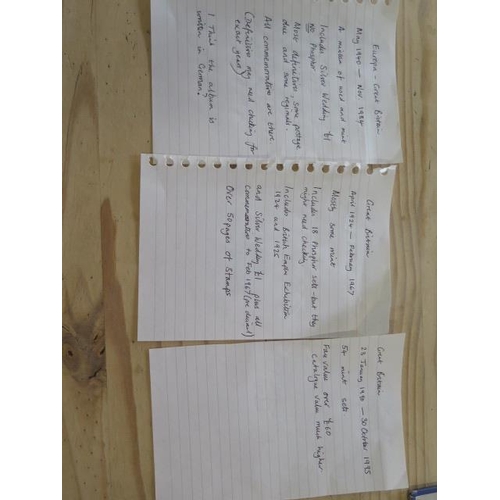 Europa - Great Britain
May 1940 — Nov 1984
A mixture of used and mint
Includes Silver Wedding £1
NO Phosphor
Most definitives, some postage
due and some regionals.
All commemoratives are there
(Definitives may need checking for
exact years)
I think the album is
written in German.
Great Britain
April 1924 — February 1967
Mostly some mint
Includes 18 Phosphor sets - but they
might need checking
Includes British Empire Exhibition
1924 and 1925
and Silver Wedding £1 plus all
commemoratives to Feb 1967 (pre decimal)
Over 50 pages of Stamps
Great Britain
24 January 1990 — 30 October 1995
54 mint sets
Face value over £60
Catalogue value much higher